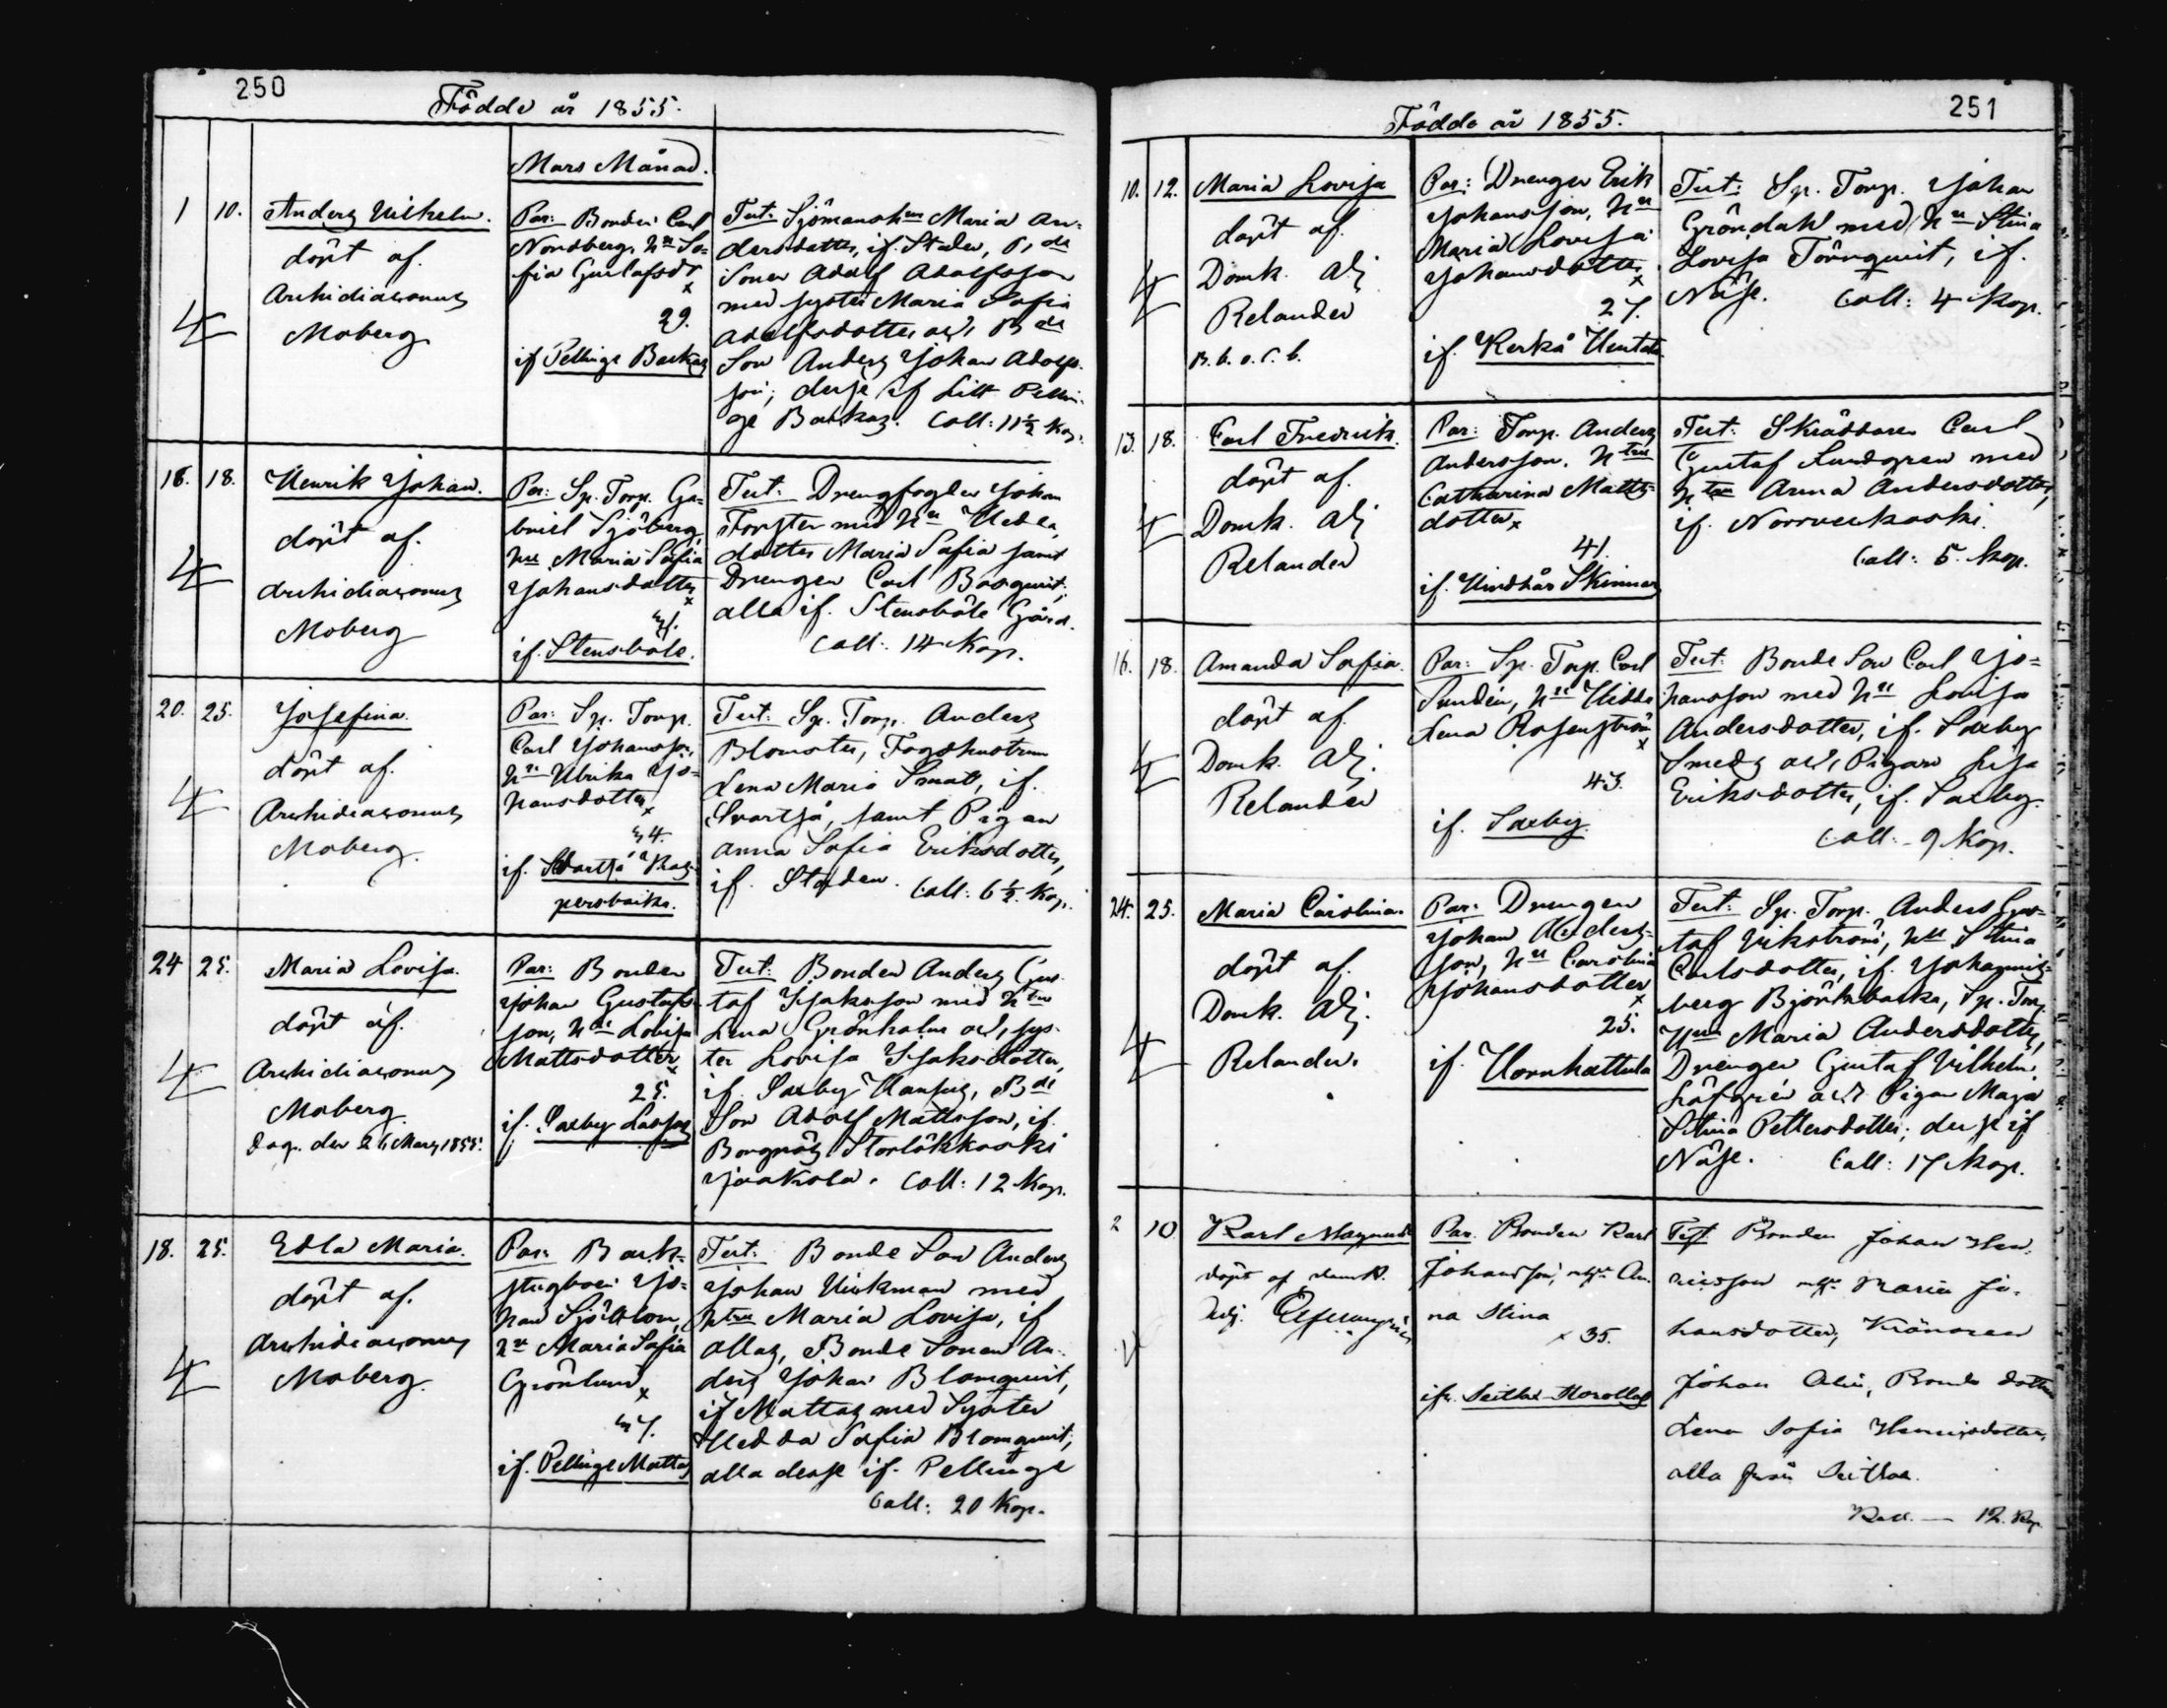 250
Födde år 1855.
Mars Månad.
1 10. Anders Vilhelm.
döpt af.
Archidiaconus
Moberg
Par: Bonden Carl
Nordberg, h. So-
fia Gustafsdr
29.
if Pellinge Backas
Test: Sjömansh Maria An-
dersdotter, if. Staden, B. de
Sonen Adolf Adolfsson
med syster Maria Sofia
Adolfsdotter och B de
Son Anders Johan Adolfs-
son; desse if Lill Pellin-
ge Backas. Coll: 11½ Kop.
16. 18. Henrik Johan.
döpt af.
Archidiaconus
Moberg
Par: Sp. Torp. Ga-
briel Sjöberg,
hu Maria Sofia
Johansdotter
if. Stensböle.
Test: Drengfogden Johan
Forster med hu Hedda,
dotter Maria Sofia samt
Drengen Carl Bosquist;
alla if. Stensböle Gård.
Coll: 14 Kop.
20. 25. Josefina.
döpt af.
Archidiaconus
Moberg.
Par: Sp. Torp.
Carl Johansson,
hu Ulrika Jo-
hansdotter
34.
if. Svartså
persbacka.
Test: Sp. Torp. Anders
Blomster, Fogdhustrun
Lena Maria Smat, if.
Svartså, samt Pigan
Anna Sofia Eriksdotter,
if. Staden. Coll: 6½ Kop.
24 25. Maria Lovisa.
döpt af.
Archidiaconus
Moberg.
Dag. den 26 Mars 1855.
Par: Bonden
Johan Gustafs-
son, hu Lovisa
Mattsdotter
25.
if. Saxby Lassas
Test: Bonden Anders Gus-
taf Isaksson med htru
Lena Grönholm och sys-
ter Lovisa Isaksdotter,
if. Saxby Hansas, Bde
Son Adolf Mattsson, if.
Borgnäs Storlökkoski
Jaakola. Coll: 12 Kop.
18. 25. Edla Maria.
döpt af.
Archidiaconus
Moberg.
Par: Back-
stugboen Jo-
han Sjöblom,
hu Maria Sofia
Grönlund
37.
if. Pellinge Mattas
Test: Bonde Son Anders
Johan Wickman med
htru Maria Lovisa, if
allas, Bonde Sonen An-
ders Johan Blomquist,
if Mattas med Syster
Hedda Sofia Blomquist;
alla desse if. Pellinge
Coll: 20 Kop.
251
Födde år 1855.
10. 12. Maria Lovisa
döpt af.
Domk. Adj
Relander
Par: Drengen Erik
Johansson, hu
Maria Lovisa
Johansdotter
27.
if. Kerko Hentala
Test: Sp. Torp. Johan
Gröndahl med hu Stina
Lovisa Törnquist, if.
Näse. Coll: 4 Kop.
13. 18. Carl Fredrik.
döpt af.
Domk. Adj
Relander
Par: Torp. Anders
Andersson, htru
Catharina Matts-
dotter
41.
if. Hindhår Skinnars
Test: Skräddaren Carl
Gustaf Lundgren med
htru Anna Andersdotter,
if. Norrveckoski.
Coll: 5. Kop.
16. 18. Amanda Sofia.
döpt af.
Domk. Adj.
Relander
Par: Sp. Torp. Carl
Sundén, hu Hedda
Lena Rosenström
43.
if. Saxby.
Test: Bonde Son Carl Jo-
hansson med hu Lovisa
Andersdotter, if. Saxby
Smeds och Pigan Lisa
Eriksdotter, if. Saxby.
Coll: 9 Kop.
24. 25. Maria Carolina
döpt af.
Domk. Adj.
Relander.
Par: Drengen
Johan Anders-
son, hu Carolina
Johansdotter
25.
if. Hornhattula
Test: Sp. Torp. Anders Gus-
taf Vikström, hu Stina
Carlsdotter, if. Johannis-
berg Björkbacka, Sp. Torp.
Hun Maria Andersdotter,
Drengen Gustaf Vilhelm
Löfgrén och Pigan Maja
Stina Pettersdotter; desse if
Näse. Coll: 17 Kop.
2 10 Karl Magnus
döpt af domk.
Adj.
Par. Bonden Karl
Johansson, An-
na Stina
35.
ifr. Seitlax
Test Bonden Johan Hen-
ricsson Maria Jo-
hansdotter,
Johan Alin, Bonde dottern
Lena Sofia Henricsdotter,
alla från Seitlax.
Koll. — 12. Kop.